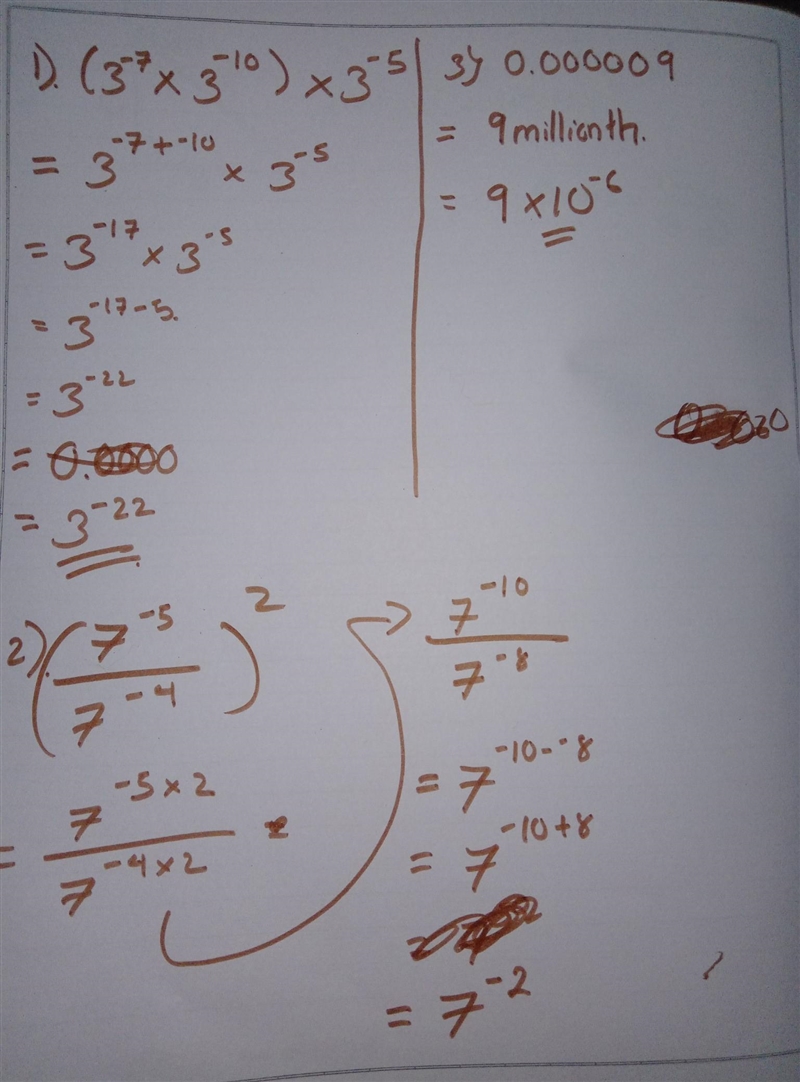 1). (3⁻⁷ × 3⁻¹⁰) × 3⁻⁵
= 3⁻⁷ ⁺ ⁻¹⁰ × 3⁻⁵
= 3⁻¹⁷ × 3⁻⁵
= 3⁻¹⁷⁻⁵·
= 3⁻²²
= 0.0000
= 3⁻²²
3) 0.000009
= 9 millionth.
= 9 × 10⁻⁶
2). (7⁻⁵ / 7⁻⁴)²
= 7^(-5 × 2) / 7^(-4 × 2)
7⁻¹⁰ / 7⁻⁸
= 7^(-10 - -8)
= 7^(-10 + 8)
= 7⁻²